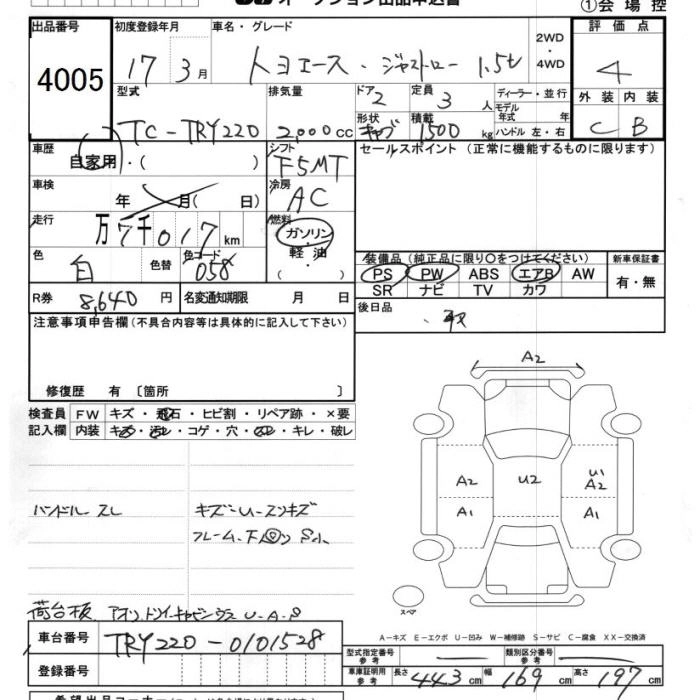 オークション出品申込書
①会場控
出品番号 初度登録年月 車名・グレード 2WD・4WD 評価点
4005 17 3月 トヨエース・ジャストロー 1.5t 4
型式 排気量 ドア 定員 ディーラー・並行 外装 内装
TC-TRY220 2,000cc 2 3人 モデル年式 年 C B
形状 積載 ハンドル 左・右
1500kg
車歴 シフト セールスポイント（正常に機能するものに限ります）
自家用・（ ） F5MT
車検 年 月（ 日） 冷房 AC
走行 万7千017km 燃料 ガソリン・軽油
色 白 色替 色コード 058
装備品（純正品に限り○をつけてください） 新車保証書
PS PW ABS エアB AW 有・無
SR ナビ TV カワ
R券 8,640円 名変通知期限 月 日 後日品
注意事項申告欄（不具合内容等は具体的に記入して下さい）
修復歴 有 〔箇所 〕
検査員 FW キズ・飛石・ヒビ割・リペア跡・×要
記入欄 内装 キズ・汚レ・コゲ・穴・・キレ・破レ
A2
A2 U2 U1 A2
A1 A1
ハンドル スレ
キズ・U・スリキズ
フレーム、下 S小
スペア
荷台板 U・A・S
A-キズ E-エクボ U-凹み W-補修跡 S-サビ C-腐食 XX-交換済
車台番号 TRY220-0101528
型式指定番号 参考 類別区分番号 参考
登録番号
車庫証明用 参考 長さ 443cm 幅 169cm 高さ 197cm